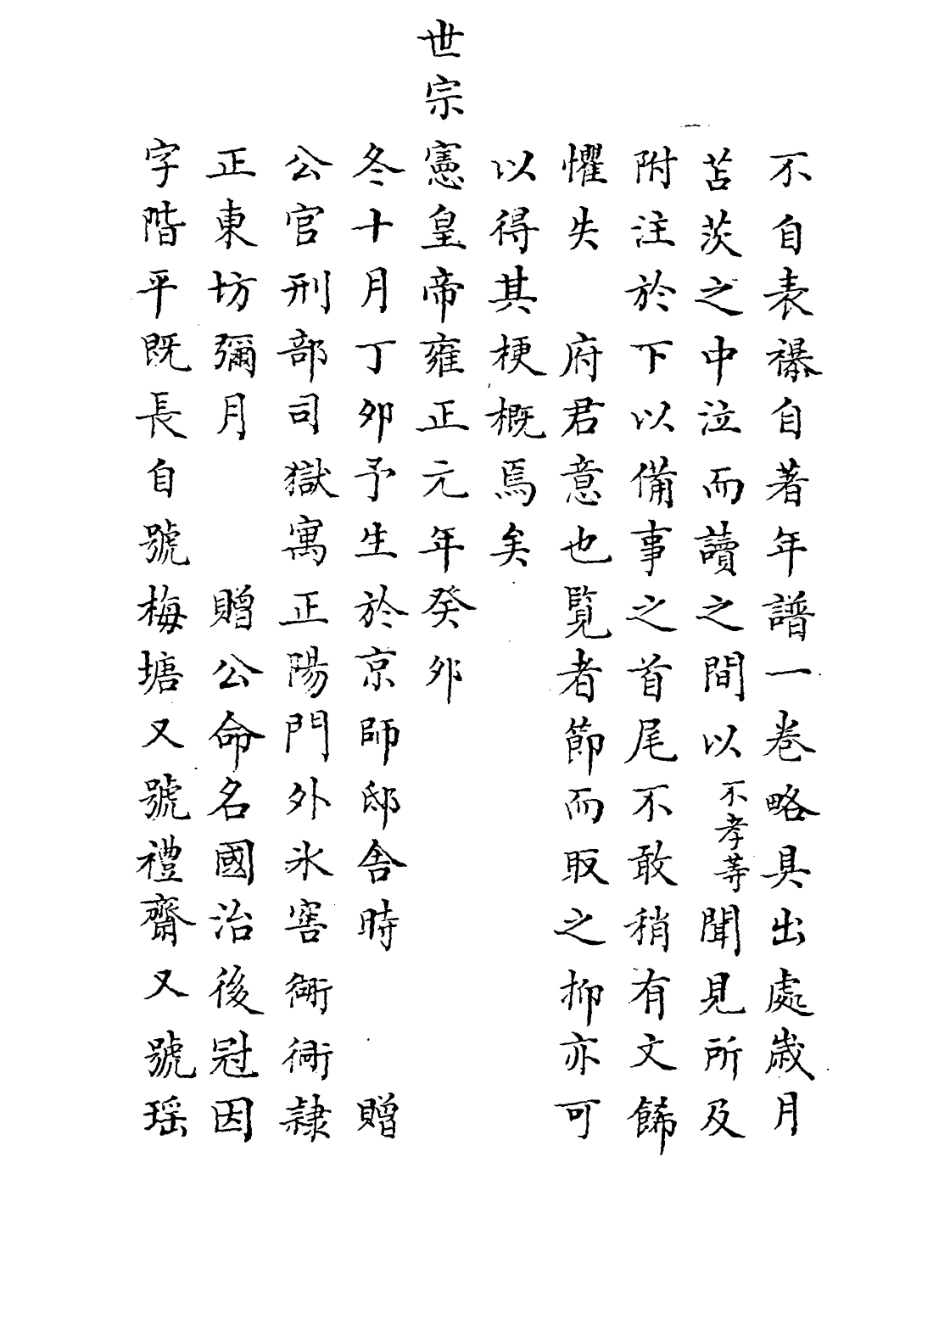 不自表襮自著年譜一卷略具出處歲月
苫茨之中泣而讀之間以不孝等聞見所及
附注於下以備事之首尾不敢稍有文餙
懼失　府君意也覧者節而取之抑亦可
以得其梗概焉矣
世宗憲皇帝雍正元年癸夘
冬十月丁夘予生於京師邸舍時　贈
公官刑部司獄寓正陽門外氷窖衚衕隷
正東坊彌月　贈公命名國治後冠因
字階平既長自號梅塘又號禮齋又號瑶